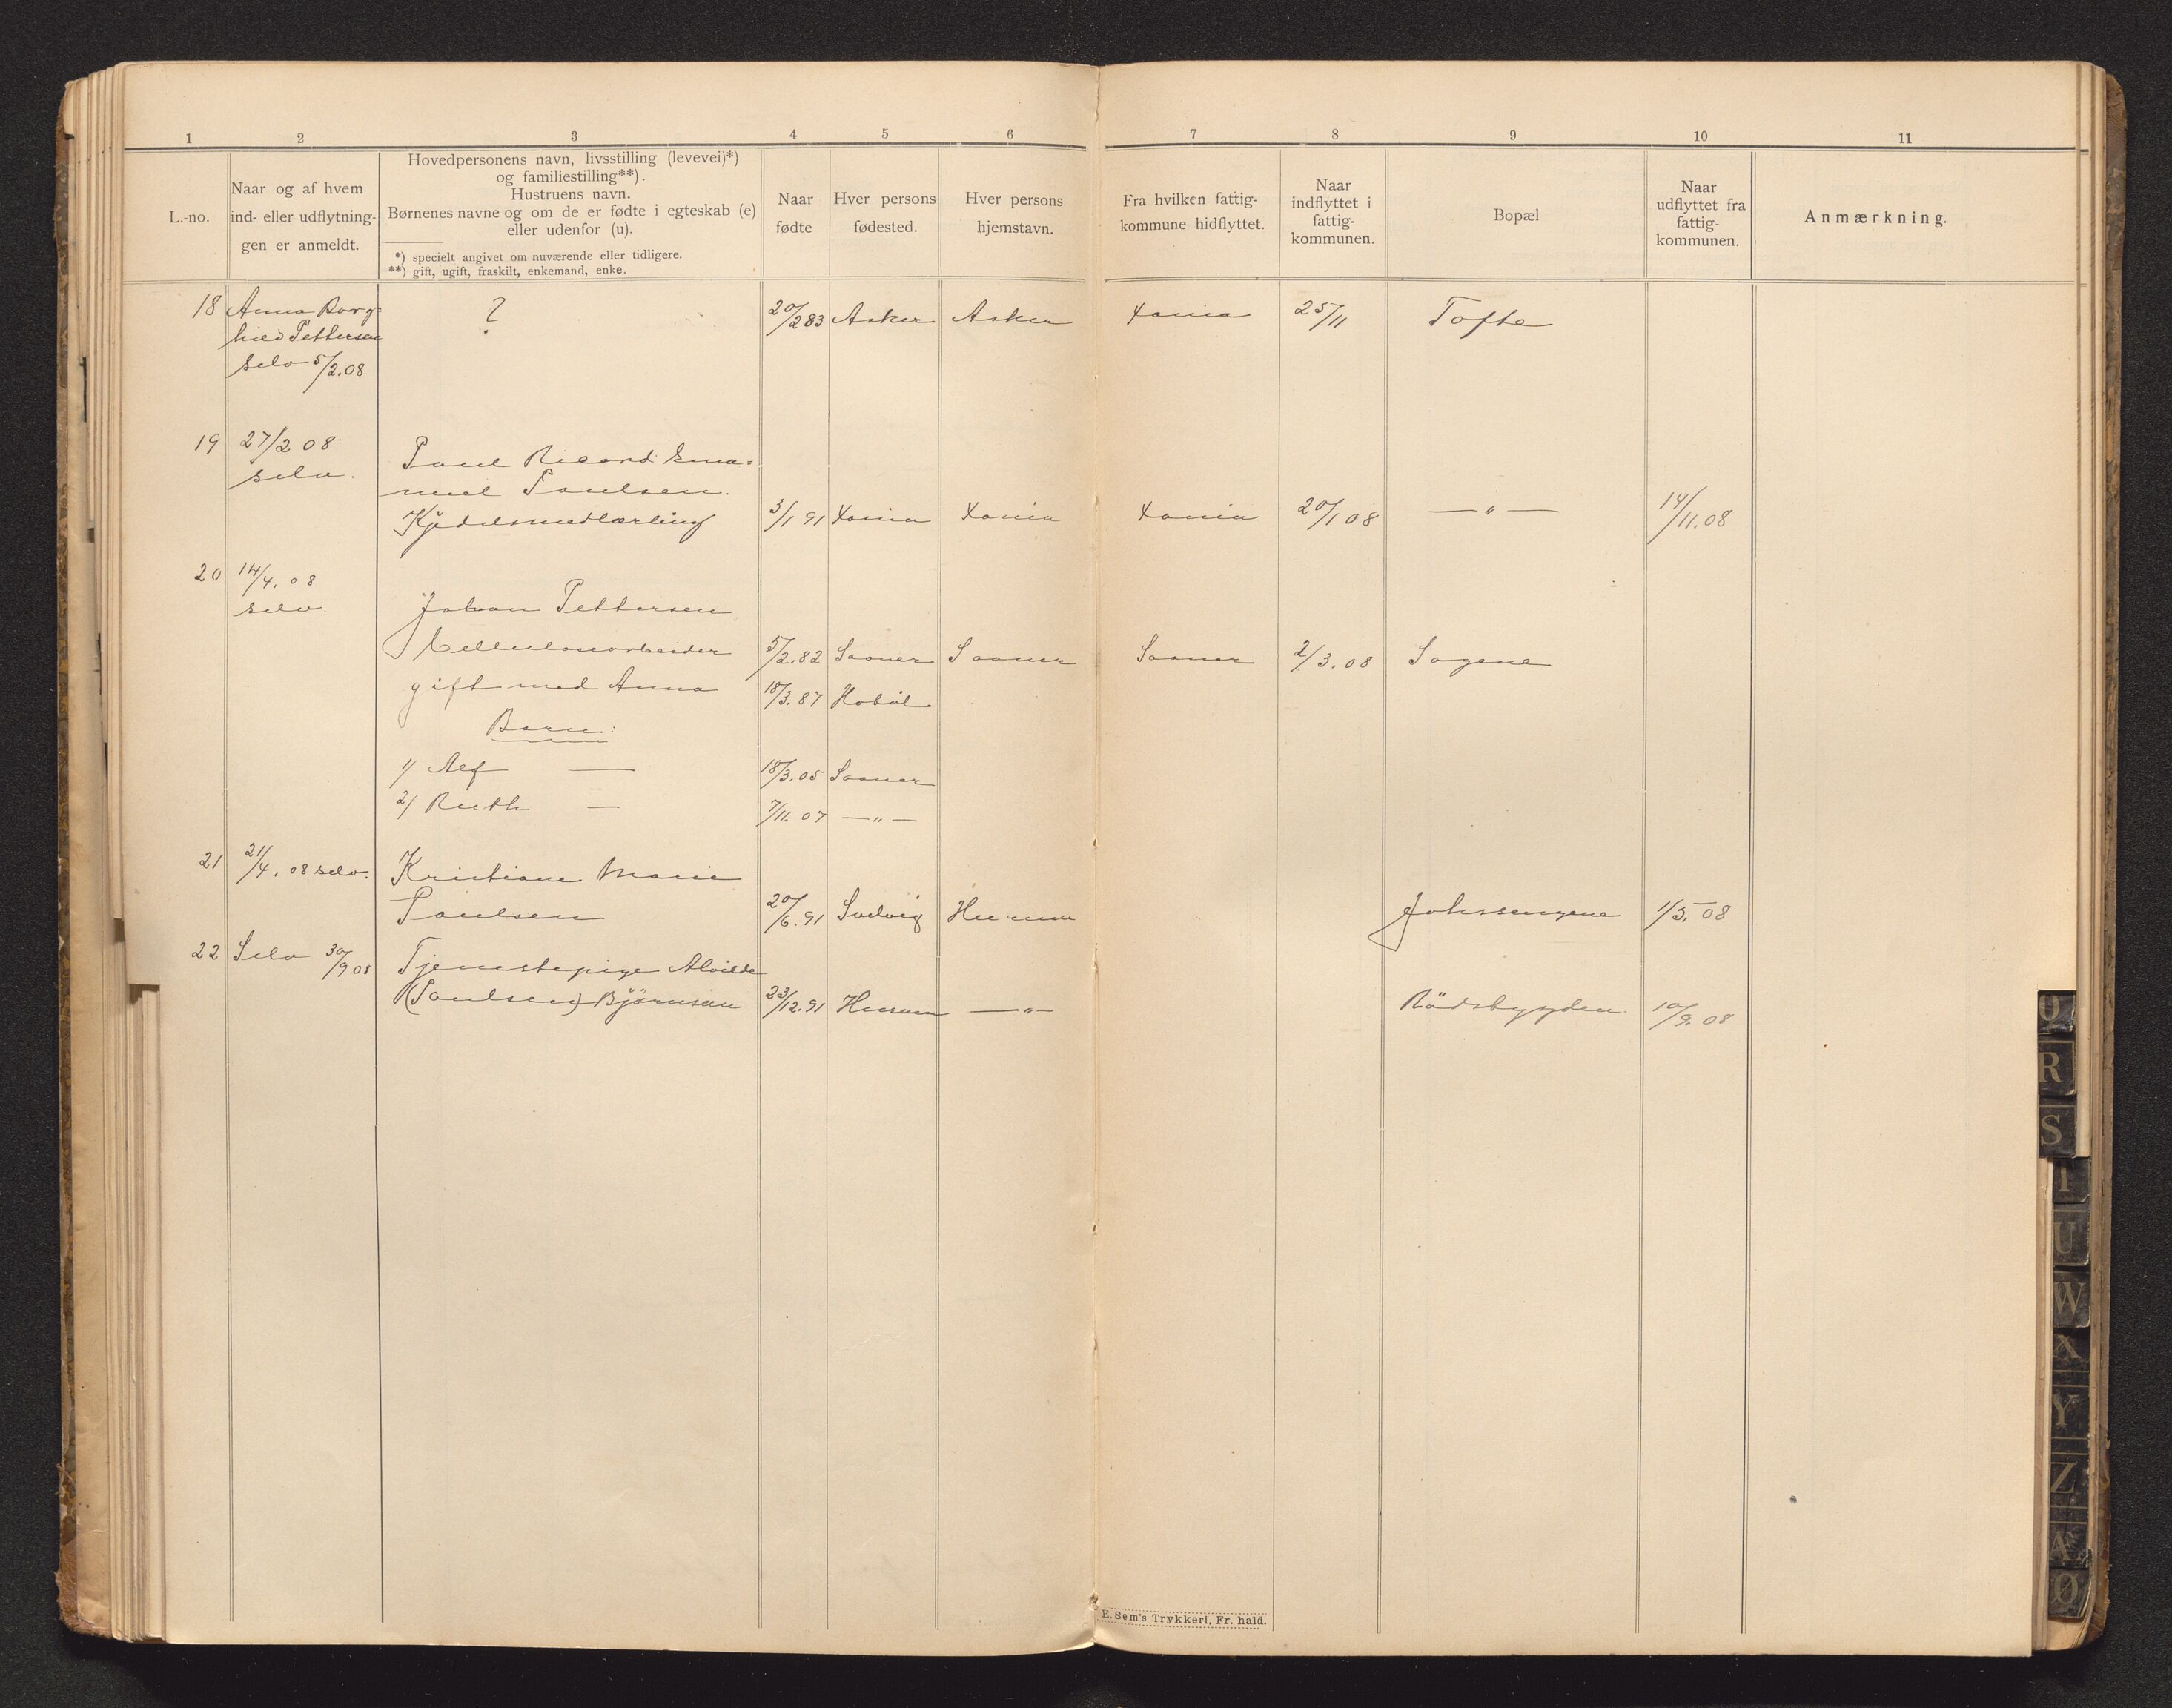 1 2 3 4 5 6 7 8 9 10 11
L.-no.
Naar og af hvem
ind- eller udflytnin-
gen er anmeldt.
Hovedpersonens navn, livsstilling (levevei)*)
og familiestilling**).
Hustruens navn.
Børnenes navne og om de er fødte i egteskab (e)
eller udenfor (u).
*) specielt angivet om nuværende eller tidligere.
**) gift, ugift, fraskilt, enkemand, enke.
Naar
fødte
Hver persons
fødested.
Hver persons
hjemstavn.
Fra hvilken fattig-
kommune hidflyttet.
Naar
indflyttet i
fattig-
kommunen.
Bopæl
Naar
udflyttet fra
fattig-
kommunen.
Anmærkning.
18 Anna Borg- ? 20/2 83 Asker Asker Xania 25/11 Tofte
hild Pettersen
Selv 5/2.08
19 27/2 08
selv. Paul Ricard Ema=
nuel Paulsen.
Kjedelsmedlærling 3/1 91 Xania Xania Xania 20/1 08 — " — 14/11.08
20 14/4. 08
selv. Johan Pettersen
Cellulosearbeider 5/2.82 Saaner Saaner Saaner 2/3. 08 Sagene
gift med Anna 18/3. 87 Hobøl
Børn:
1/ Alf — 18/3. 05 Saaner
2/ Ruth — 7/11. 07 — " —
21 21/4. 08 selv. Kristiane Marie
Paulsen 20/6. 91 Svelvig Hurum Johnsengene 1/5. 08
22 Selv 30/9 08 Tjenestepige Alvilde
(Paulsen) Bjørnsen 23/12. 91 Hurum — " — Rödsbygden. 10/9. 08
E. Sem's Trykkeri, Fr. hald.
Q
R
S
T
U
W
X
Y
Z
Æ
Ø